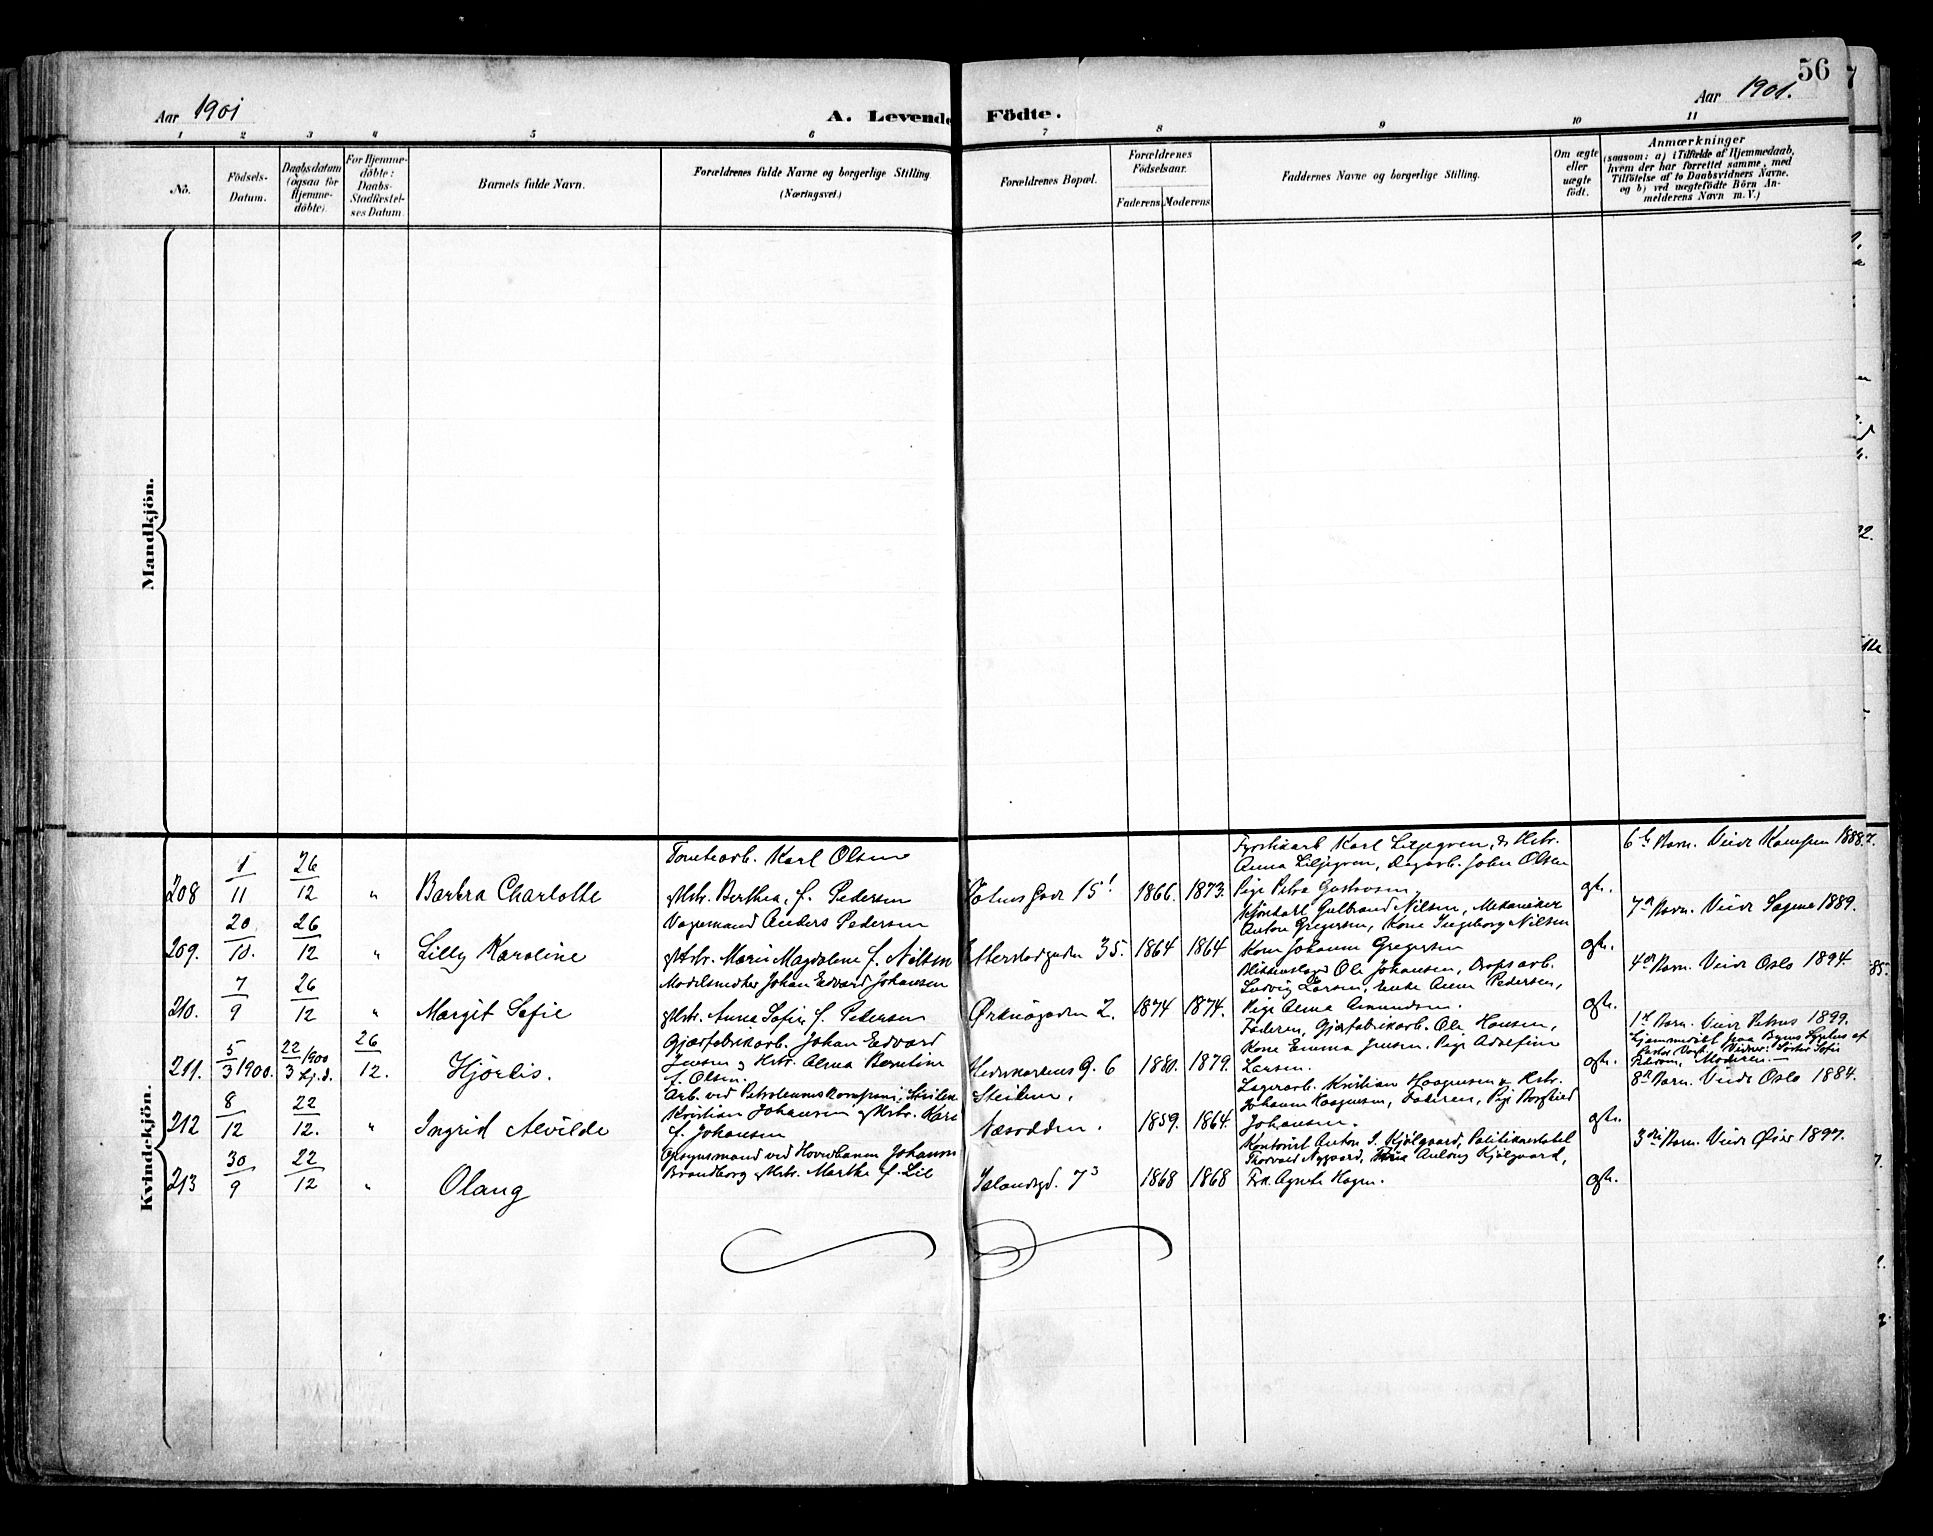 56
Aar 1901
A. Levende Födte.
Aar 1901.
1 2 3 4 5 6 7 8 9 10 11
No.
Födsels-
Datum.
Daabsdatum
(ogsaa for
Hjemme-
döbte).
For Hjemme-
döbte:
Daabs-
Stadfæstel-
ses Datum.
Barnets fulde Navn.
Forældrenes fulde Navne og borgerlige Stilling.
(Næringsvei.)
Forældrenes Bopæl.
Forældrenes
Födselsaar.
Faderens Moderens
Faddernes Navne og borgerlige Stilling.
Om ægte
eller
uægte
født.
Anmærkninger
(saasom: a) i Tilfælde af Hjemmedaab,
hvem der har forrettet samme, med
Tilføielse af to Daabsvidners Navne,
og b) ved uægtefödte Börn An-
melderens Navn m. V.)
Mandkjön.
Kvindekjön.
208
1/11
26/12
"
Barbra Charlotte
Karl Olsen
Hstr. Berthea, f. Pedersen
15 1
1866.
1873.
Karl Liljegren, & Hstr.
Anna Liljegren, Dagarb. John Olsen
Pige Petra Gustavsen
gte.
6te Barn. Viede Kampen 1888.
209.
20/10.
26/12
"
Lilly Karoline
Vognmand Anders Pedersen
& Hstr. Marie Magdalene f. Nilsen
Etterstadgaden 35.
1864
1864
Gulbrand Nilsen, Mekaniker
Anton Gregersen, Kone Ingeborg Nilsen
Kone Johanne Gregersen
gte.
7de Barn. Viede Sagene 1889.
210.
7/9
26/12
"
Margit Sofie
Modelsnedker Johan Edvard Johansen
& Hstr. Anna Sofie, f. Pedersen
Örknögaden 2.
1874
1874.
Ole Johansen,
Ludvig Larsen, Enke Anne Pedersen,
Pige Anna Amundsen.
gte.
4de Barn. Viede Oslo 1894.
211.
5/3 1900.
22/3 1900 Hj.d.
26/12.
Hjördis.
Gjærfabrikarb. Johan Edvard
Jensen & Hstr. Alma Berntine
f. Olsen.
G. 6
1880.
1879.
Faderen, Gjærfabrikarb. Ole Hansen,
Kone Emma Jensen, Pige Adolfine
Larsen.
gte.
1ste Barn. Viede Petrus 1899.
Hjemmedöbt paa Byens Sygehus af
Pastor Vogt. Vidner: Söster Sofie
Moderen.
212
8/12
22/12.
"
Ingrid Alvilde
Arb. ved Petroleumskompani, Steilene
Kristian Johansen & Hstr. Kari
f. Johansen
Steilene,
Næsodden.
1859.
1864.
Lagerarb. Kristian Haagensen & Hstr.
Johanne Haagensen, Faderen, Pige Borghild
Johansen.
gte.
8de Barn. Viede Oslo 1884.
213
30/9
22/12
"
Olaug
Opsynsmand ved Hovedbanen Johannes
Brandborg & Hstr. Marthe f. Lie
Jelandsgd. 7 3
1868
1868
Kontorist Anton J. Kjölgaard, Politikonstabel
Thorvald Nygaard, Frua Aulong Kjölgaard,
Frk. Agnete Hagen.
gte.
3die Barn. Viede Öier 1897.